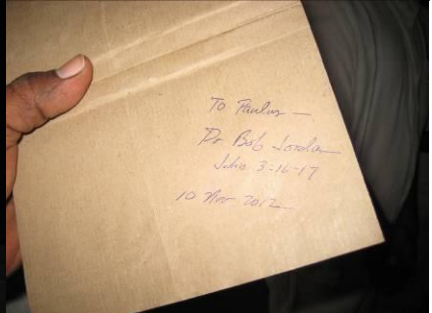 To Paulus —
Dr Bob Jordan
John 3:16-17
10 Nov 2012